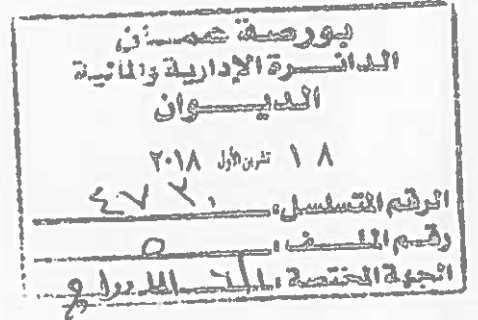 بورصة عمان
الدائرة الإدارية والمالية
الديوان
١٨ تشرين الأول ٢٠١٨
الرقم المتسلسل:
رقم الملف: ٥
الجهة المختصة: